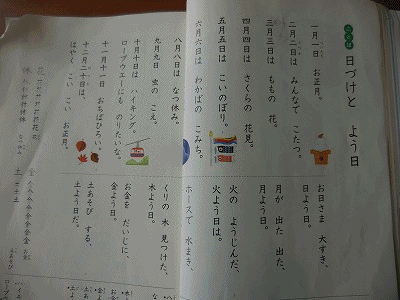 ことば
日づけと よう日
一月一日 お正月。
二月二日は みんなで こたつ。
三月三日は ももの 花。
四月四日は さくらの 花見。
五月五日は こいのぼり。
六月六日は わかばの こみち。
八月八日は なつ休み。
九月九日 虫の こえ。
十月十日は ハイキング。
ロープウエーにも のりたいな。
十一月十一日 おちばひろい。
十二月二十日は、
はやく こい こい お正月。
お日さま 大すき、
日よう日。
月が 出た 出た、
月よう日。
火の ようじんだ、
火よう日は。
ホースで 水まき、
くりの 木 見つけた、
木よう日。
お金を だいじに、
金よう日。
土あそび する、
土よう日だ。
花
休
土
金